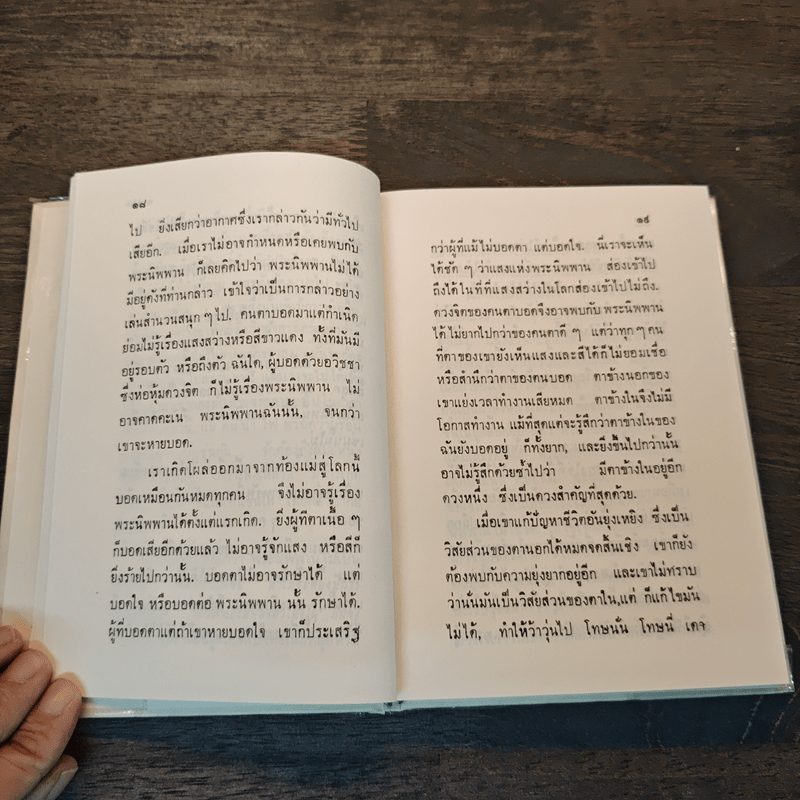 ๑๘
ไป ยิ่งเสียกว่าอากาศซึ่งเรากล่าวกันว่ามีทั่วไป
เสียอีก. เมื่อเราไม่อาจกำหนดหรือเคยพบกับ
พระนิพพาน ก็เลยคิดไปว่า พระนิพพานไม่ได้
มีอยู่ดังที่ท่านกล่าว เข้าใจว่าเป็นการกล่าวอย่าง
เล่นสำนวนสนุก ๆ ไป. คนตาบอดมาแต่กำเนิด
ย่อมไม่รู้เรื่องแสงสว่างหรือสีขาวแดง ทั้งที่มันมี
อยู่รอบตัว หรือถึงตัว ฉันใด, ผู้บอดด้วยอวิชชา
ซึ่งห่อหุ้มดวงจิต ก็ไม่รู้เรื่องพระนิพพาน ไม่
อาจคาดคะเน พระนิพพานฉันนั้น, จนกว่า
เขาจะหายบอด.
เราเกิดโผล่ออกมาจากท้องแม่สู่โลกนี้
บอดเหมือนกันหมดทุกคน จึงไม่อาจรู้เรื่อง
พระนิพพานได้ตั้งแต่แรกเกิด. ยิ่งผู้ที่ตาเนื้อ ๆ
ก็บอดเสียอีกด้วยแล้ว ไม่อาจรู้จักแสง หรือสีก็
ยิ่งร้ายไปกว่านั้น. บอดตาไม่อาจรักษาได้ แต่
บอดใจ หรือบอดต่อ พระนิพพาน นั้น รักษาได้.
ผู้ที่บอดตาแต่ถ้าเขาหายบอดใจ เขาก็ประเสริฐ
๑๙
กว่าผู้ที่แม้ไม่บอดตา แต่บอดใจ. นี่เราจะเห็น
ได้ชัด ๆ ว่าแสงแห่งพระนิพพาน ส่องเข้าไป
ถึงได้ในที่ที่แสงสว่างในโลกส่องเข้าไปไม่ถึง.
ดวงจิตของคนตาบอดจึงอาจพบกับ พระนิพพาน
ได้ ไม่ยากไปกว่าของคนตาดี ๆ แต่ว่าทุก ๆ คน
ที่ตาของเขายังเห็นแสงและสีได้ก็ไม่ยอมเชื่อ
หรือสำนึกว่าตาของตนบอด ตาข้างนอกของ
เขาแย่งเวลาทำงานเสียหมด ตาข้างในจึงไม่มี
โอกาสทำงาน แม้ที่สุดแต่จะรู้สึกว่าตาข้างในของ
ฉันยังบอดอยู่ ก็ทั้งยาก, และยิ่งขึ้นไปกว่านั้น
อาจไม่รู้สึกด้วยซ้ำไปว่า มีตาข้างในอยู่อีก
ดวงหนึ่ง ซึ่งเป็นดวงสำคัญที่สุดด้วย.
เมื่อเขาแก้ปัญหาชีวิตอันยุ่งเหยิง ซึ่งเป็น
วิสัยส่วนของตานอกได้หมดจดสิ้นเชิง เขาก็ยัง
ต้องพบกับความยุ่งยากอยู่อีก และเขาไม่ทราบ
ว่านั่นมันเป็นวิสัยส่วนของตาใน,แต่ ก็แก้ไขมัน
ไม่ได้, ทำให้ว้าวุ่นไป โทษนั่น โทษนี่ เดา